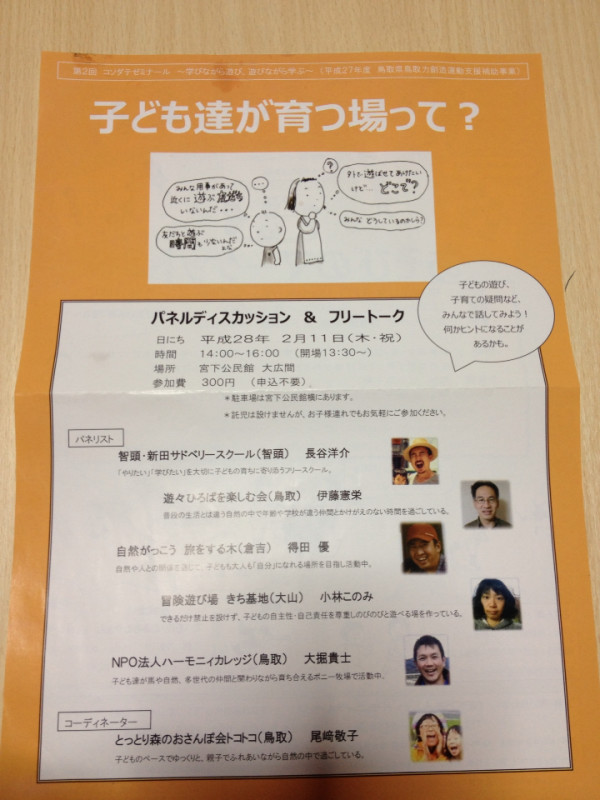 第2回 コソダテゼミナール ～学びながら遊び、遊びながら学ぶ～ (平成27年度 鳥取県鳥取力創造運動支援補助事業)
子ども達が育つ場って？
みんな用事があって
近くに遊ぶ
いないんだ・・・
友だちと遊ぶ
時間もないんだ
・・・
?
遊ばせてあげたい
けど… どこで?
みんな どうしているのかしら?
子どもの遊び、
子育ての疑問など、
みんなで話してみよう！
何かヒントになることが
あるかも。
パネルディスカッション ＆ フリートーク
日にち 平成28年 2月11日(木・祝)
時間 14:00～16:00 (開場13:30～)
場所 宮下公民館 大広間
参加費 300円 (申込不要)
＊駐車場は宮下公民館横にあります。
＊託児は設けませんが、お子様連れでもお気軽にご参加ください。
パネリスト
智頭・新田サドベリースクール(智頭) 長谷洋介
「やりたい」「学びたい」を大切に子どもの育ちに寄り添うフリースクール。
遊々ひろばを楽しむ会(鳥取) 伊藤憲栄
普段の生活とは違う自然の中で年齢や学校が違う仲間とかけがえのない時間を過ごしている。
自然がっこう 旅をする木(倉吉) 得田 優
自然や人との関係を通じて、子どもも大人も「自分」になれる場所を目指し活動中。
冒険遊び場 きち基地(大山) 小林このみ
できるだけ禁止を設けず、子どもの自主性・自己責任を尊重しのびのびと遊べる場を作っている。
NPO法人ハーモニィカレッジ(鳥取) 大堀貴士
子ども達が馬や自然、多世代の仲間と関わりながら育ち合えるポニー牧場で活動中。
コーディネーター
とっとり森のおさんぽ会トコトコ(鳥取) 尾﨑敬子
子どものペースでゆっくりと、親子でふれあいながら自然の中で過ごしている。